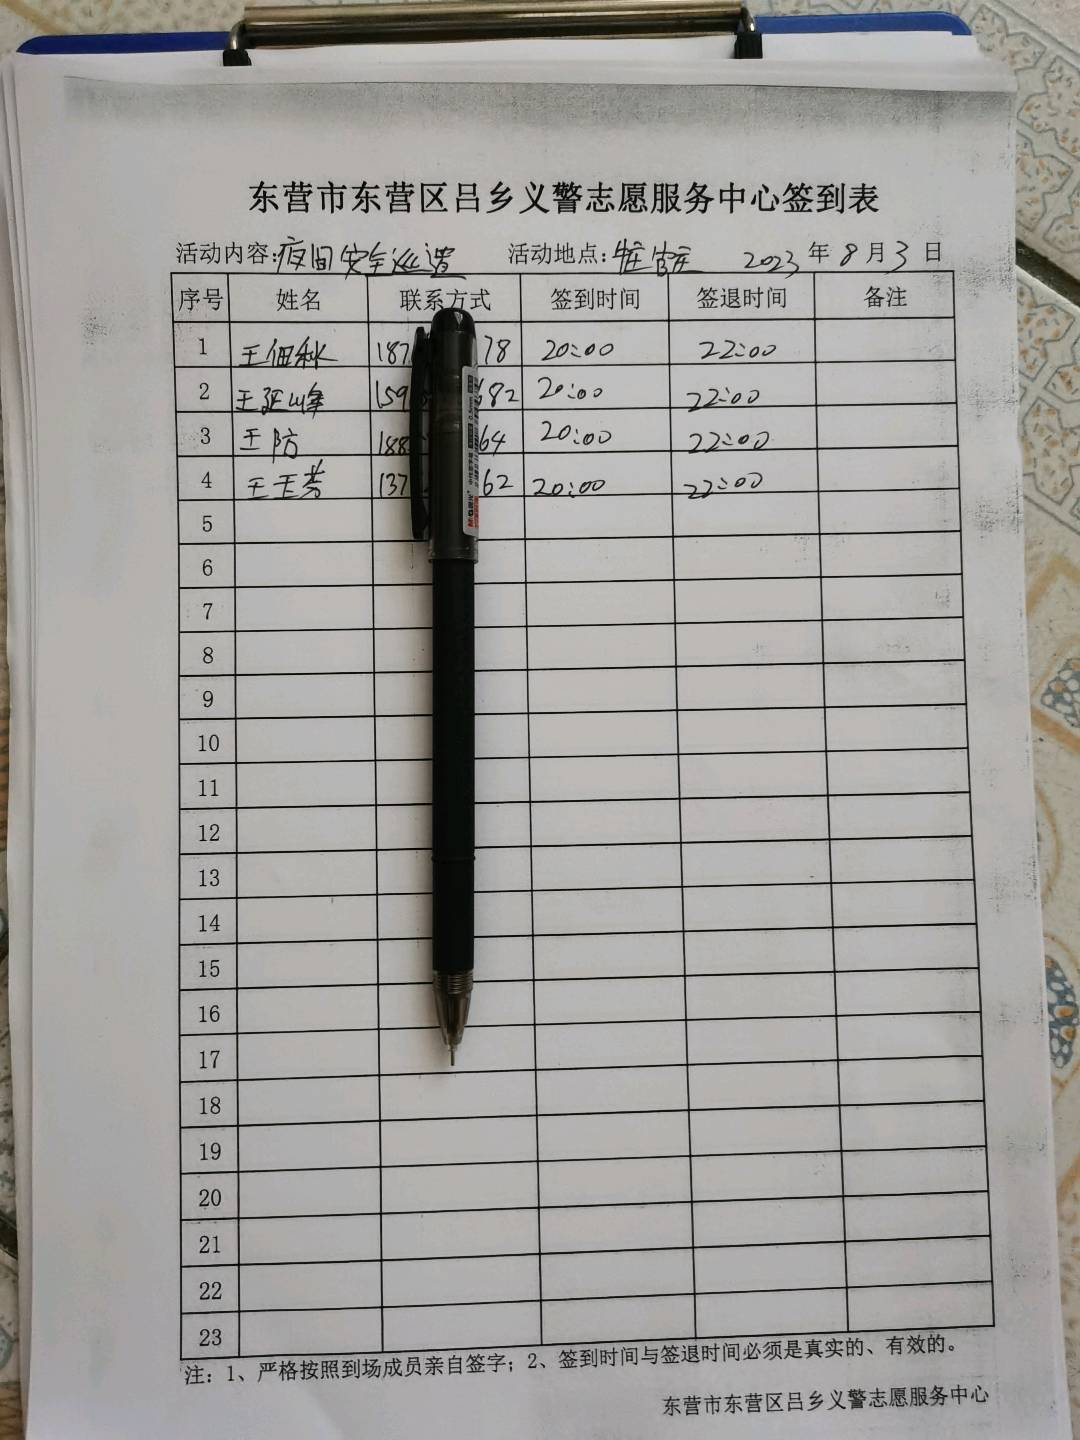 东营市东营区吕乡义警志愿服务中心签到表
活动内容:夜间安全巡逻 活动地点: 2023 年 8 月 3 日
序号 姓名 联系方式 签到时间 签退时间 备注
1 王佃秋 187 78 20:00 22:00
2 王延峰 159 682 20:00 22:00
3 王防 188 64 20:00 22:00
4 王玉芳 137 62 20:00 22:00
5
6
7
8
9
10
11
12
13
14
15
16
17
18
19
20
21
22
23
注: 1、严格按照到场成员亲自签字; 2、签到时间与签退时间必须是真实的、有效的。
东营市东营区吕乡义警志愿服务中心